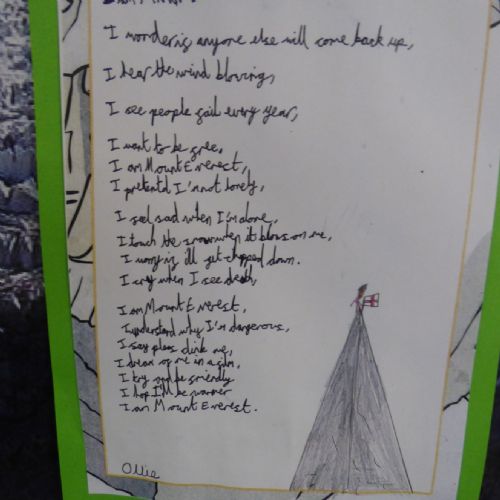 I wonder is anyone else will come back up,
I hear the wind blowing,
I see people fail every year,
I want to be free,
I am Mount Everest,
I pretend I'm not lonely,
I feel sad when I'm alone,
I touch the snow when it blows on me,
I worry if I'll get chopped down.
I cry when I see death,
I am Mount Everest,
I understand why I'm dangerous,
I say pleas climb me,
I dream of me in a film,
I try and be friendly
I hop I'M be warmer
I am Mount Everest.
Ollie